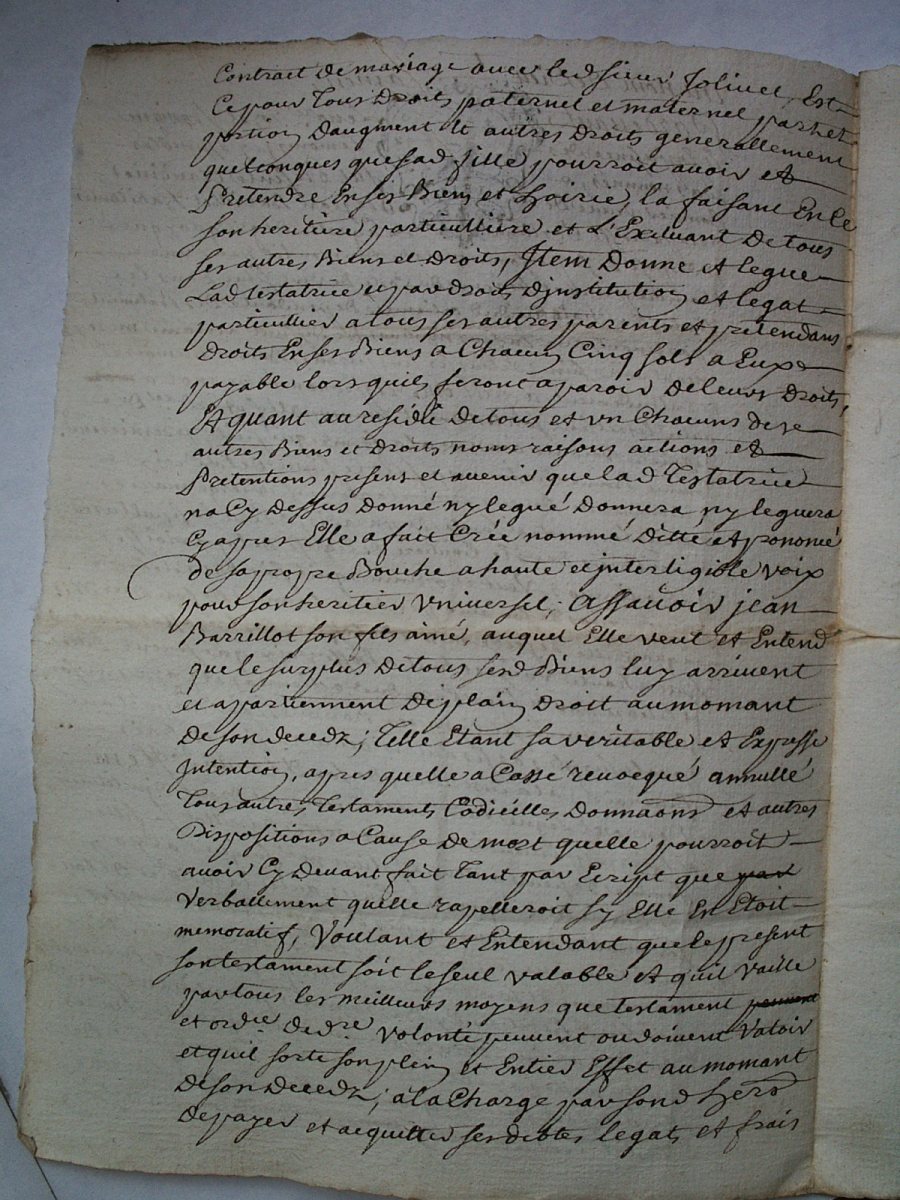 Contract de mariage avec led sieur Jolivet, Est
Ce pour Tous Droits paternel et maternel part et
portion Daugment et autres Droits generallement
quelconques que sad fille pourroit avoir et
Pretendre En ses Biens et hoirie, la faisant En ce
son heritiere particulliere et L'Excluant De tous
ses autres Biens et Droits, Item Donne et legue
Lad testatrice et par droit Djnstitution et legat
particullier a tous ses autres parents et pretendans
Droits En ses Biens a Chacun Cinq sols a Eux
payable lors quils feront aparoir De leurs Droits,
Et quant au residü De tous et vn Chacuns de se
autres Biens et Droits noms raisons actions et
Pretentions present et avenir que lad Testatrice
na Cy Dessus Donné ny legué Donnera ny leguera
Cy apres Elle a fait Créé nommé Ditté et prononcé
de sa propre Bouche a haute et jnterligible voix
pour son heritier Vniversel, assavoir jean
Barrillot son fils ainé, auquel Elle veut et Entend
que le surplus De tous sesd Biens luy arrivent
et apartiennent De plain Droit au momant
De son decedz; Telle Etant sa veritable et Expresse
Intention, apres quelle a Cassé revocqué annullé
Tous autres Testaments Codicilles Donnaons et autres
Dispositions a Cause De mort quelle pourroit
avoir Cy Devant fait Tant par Ecript que par
Verballement quelle rapelleroit sy Elle En Etoit
memoratif, Voulant et Entendant que le present
son testament soit le seul valable et quil vaille
par tous les meilleurs moyens que testament peuvent
et ordre. de dre volonté peuvent ou doivent Valoir
et quil sorte son plein et Entier Effet au momant
De son Decedz; a la Charge par sond hers
De payer et acquitter ses debtes legats et frais